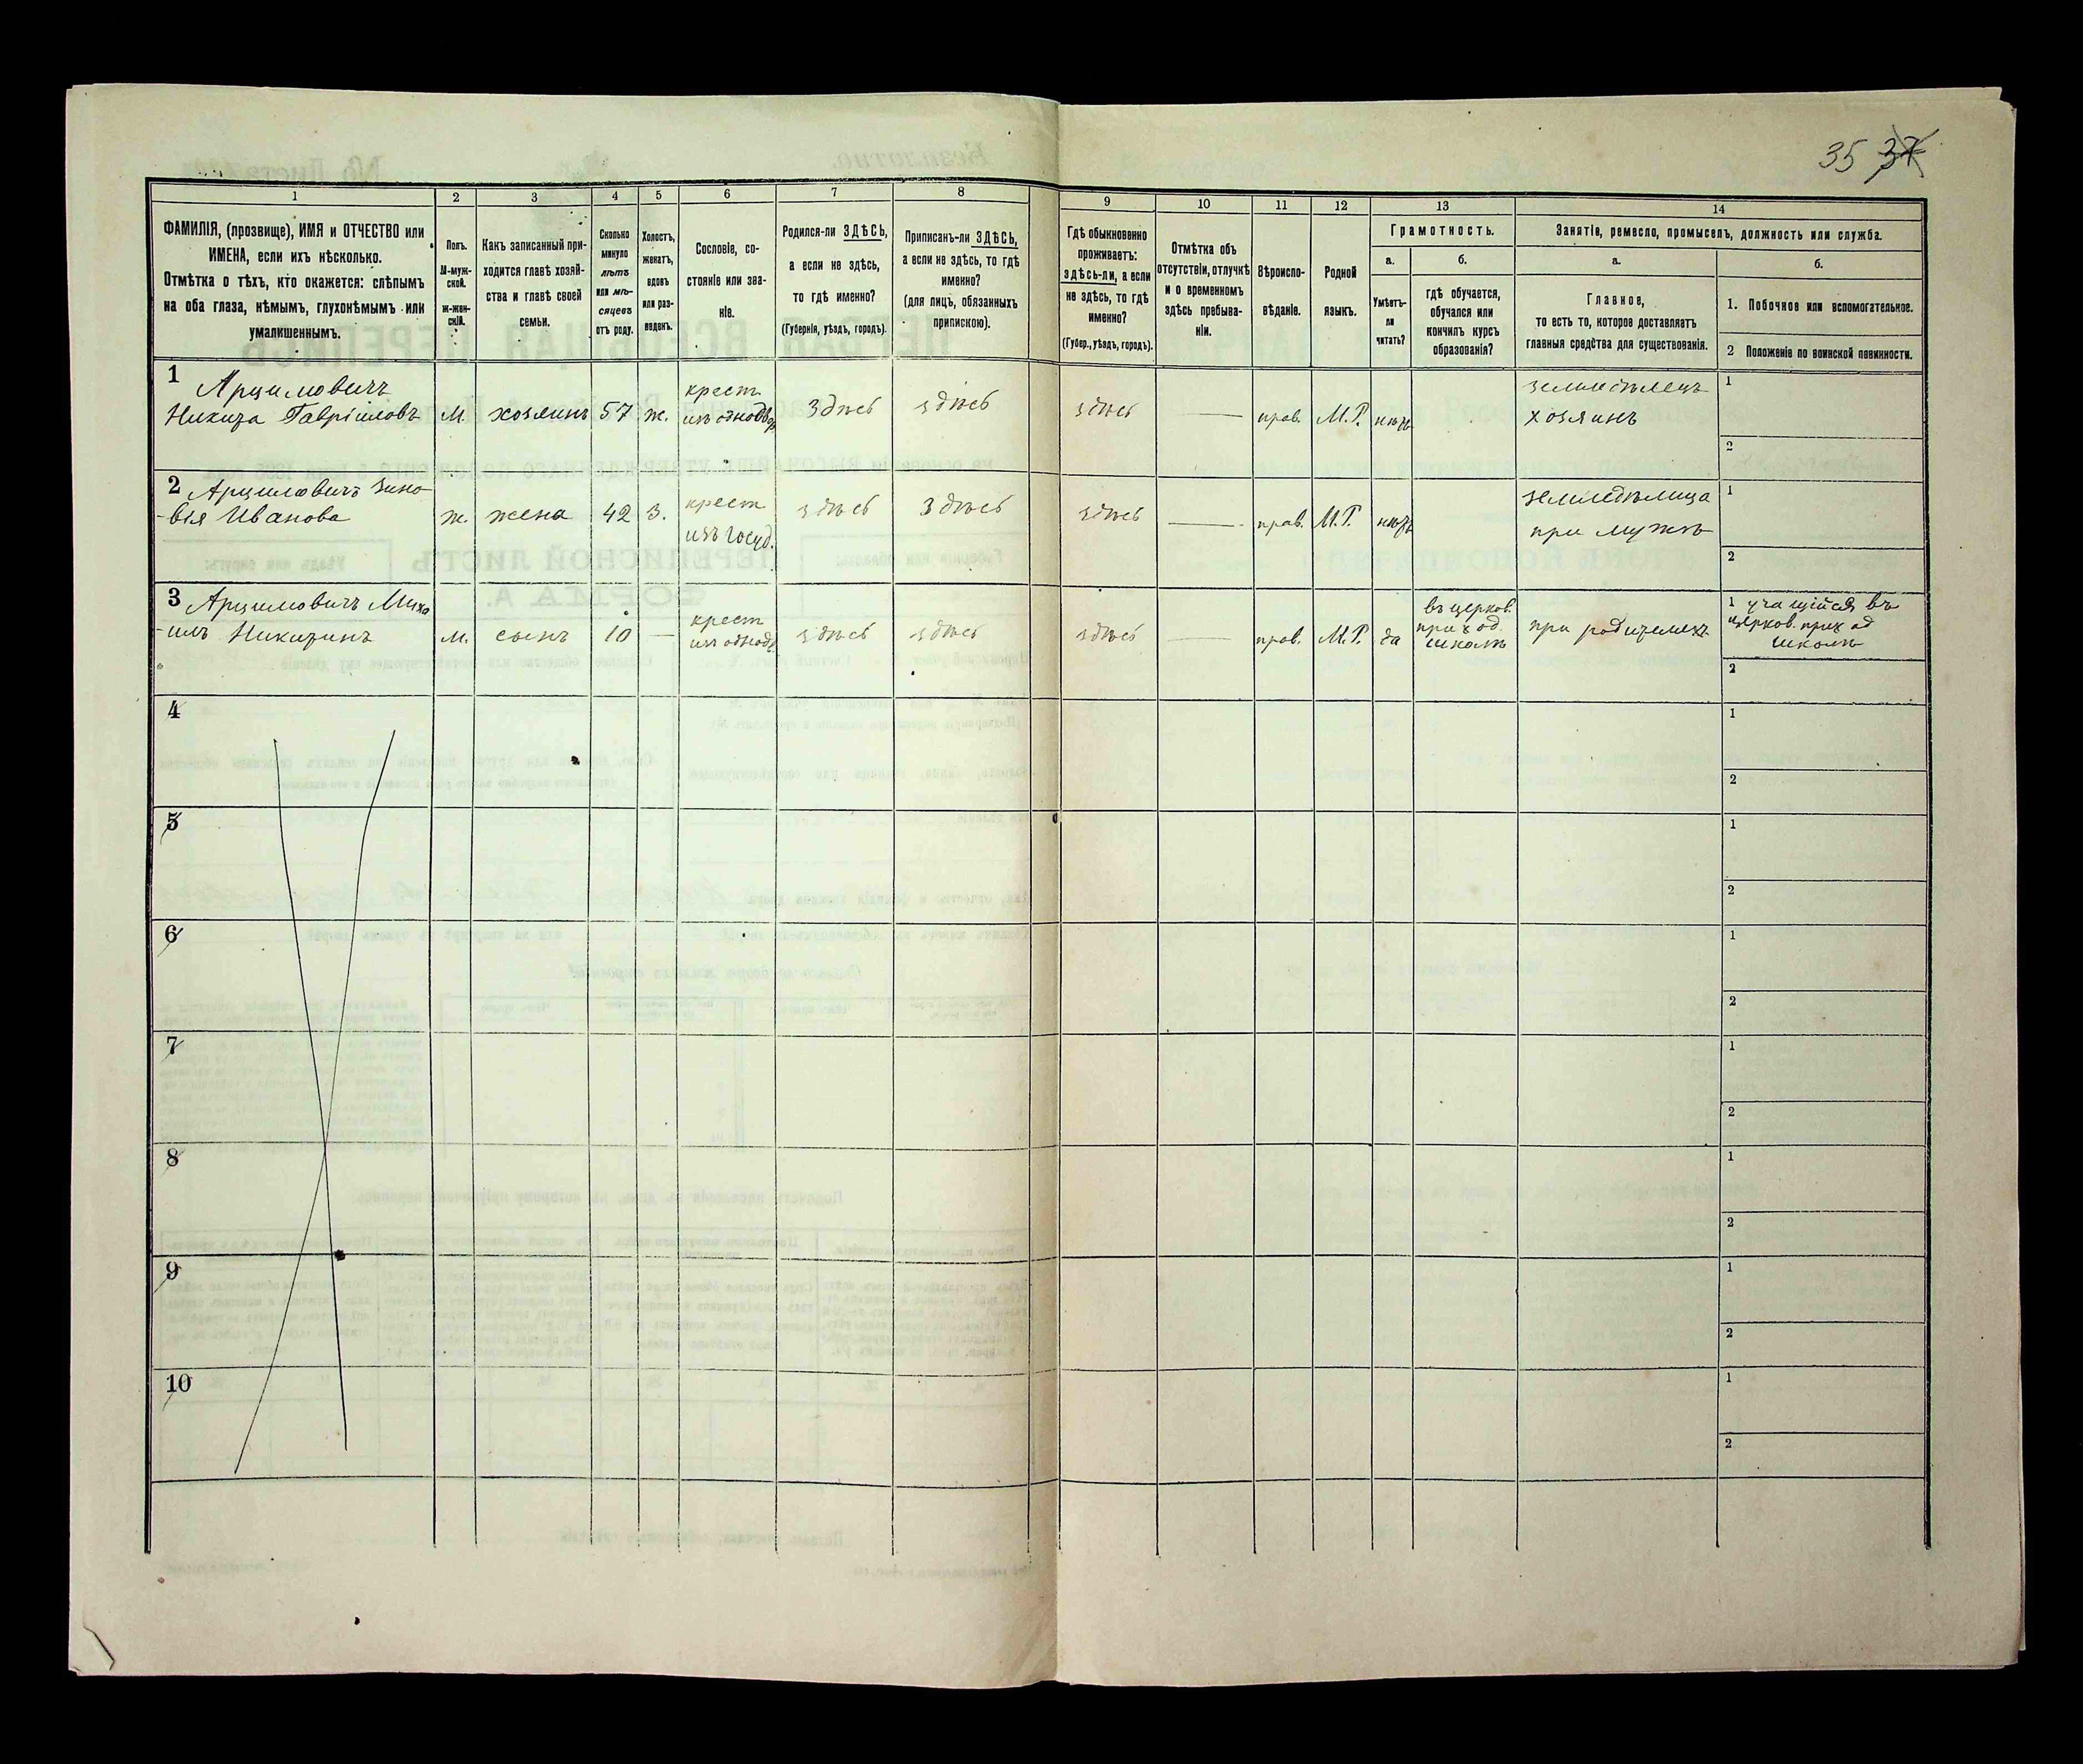 35 37
1
2
3
4
5
6
7
8
9
10
11
12
13
14
ФАМИЛІЯ, (прозвище), ИМЯ и ОТЧЕСТВО или
ИМЕНА, если ихъ нѣсколько.
Отмѣтка о тѣхъ, кто окажется: слѣпымъ
на оба глаза, нѣмымъ, глухонѣмымъ или
умалишеннымъ.
Полъ.
М-муж-
ской.
ж-жен-
скій.
Какъ записанный при-
ходится главѣ хозяй-
ства и главѣ своей
семьи.
Сколько
минуло
лѣтъ
или мѣ-
сяцевъ
отъ роду.
Холостъ,
женатъ,
вдовъ
или раз-
веденъ.
Сословіе, со-
стояніе или зва-
ніе.
Родился-ли ЗДѢСЬ,
а если не здѣсь,
то гдѣ именно?
(Губернія, уѣздъ, городъ).
Приписанъ-ли ЗДѢСЬ,
а если не здѣсь, то гдѣ
именно?
(для лицъ, обязанныхъ
припискою).
Гдѣ обыкновенно
проживаетъ:
здѣсь-ли, а если
не здѣсь, то гдѣ
именно?
(Губер., уѣздъ, городъ).
Отмѣтка объ
отсутствіи, отлучкѣ
и о временномъ
здѣсь пребыва-
ніи.
Вѣроиспо-
вѣданіе.
Родной
языкъ.
Грамотность.
а.
Умѣетъ-
ли
читать?
б.
гдѣ обучается,
обучался или
кончилъ курсъ
образованія?
Занятіе, ремесло, промыселъ, должность или служба.
а.
Главное,
то есть то, которое доставляетъ
главныя средства для существованія.
б.
1. Побочное или вспомогательное.
2 Положеніе по воинской повинности.
1
Арцимовичъ
Никита Гавріиловъ
М.
хозяинъ
57
ж.
крест
изъ однодвр
Здѣсь
здѣсь
здѣсь
прав.
М.Р.
нѣтъ
земледѣлецъ
хозяинъ
1
2
2 Арцимовичъ Зино-
-вія Иванова
ж.
жена
42
з.
крест
изъ госуд.
здѣсь
Здѣсь
здѣсь
прав.
М.Р.
нѣтъ
земледѣлица
при мужѣ
1
2
3 Арцимовичъ Миха
-илъ Никитинъ
м.
сынъ
10
крест
изъ однодв.
здѣсь
здѣсь
здѣсь
прав.
М.Р.
да
въ церков.
приход.
школѣ
при родителяхъ
1 учащійся въ
церков. приход
школѣ
2
4
1
2
5
1
2
6
1
2
7
1
2
8
1
2
9
1
2
10
1
2